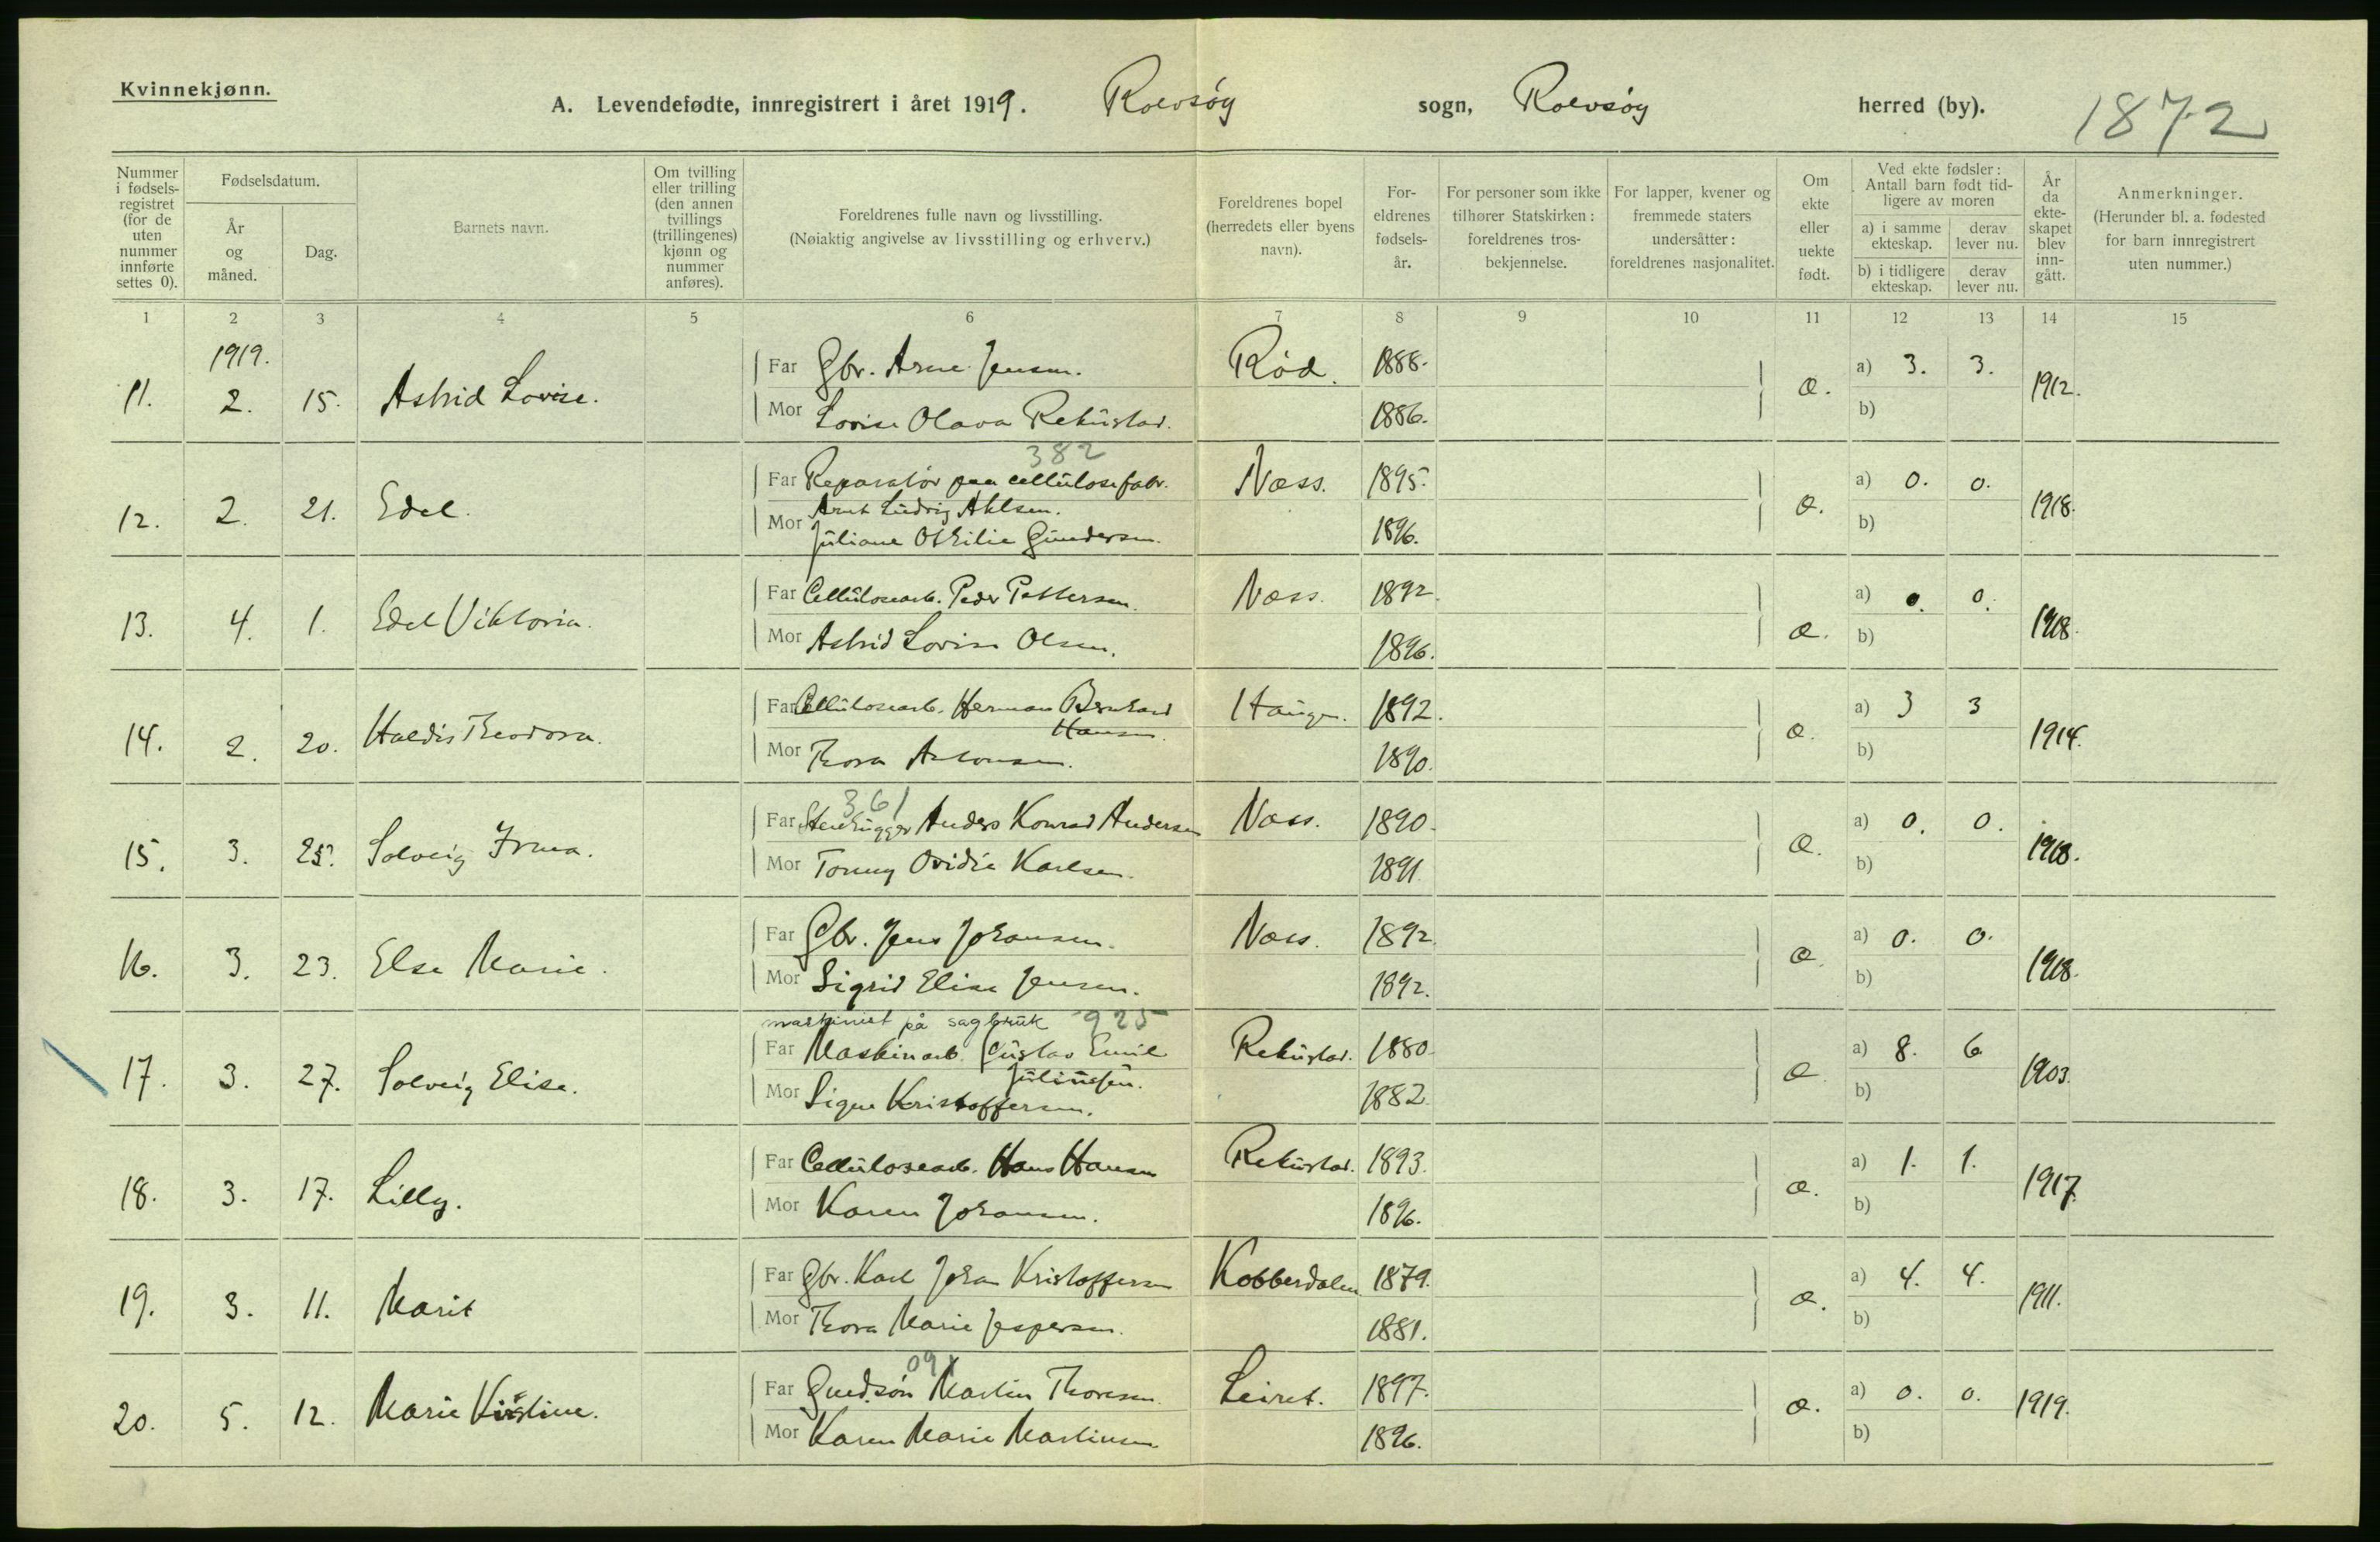 Kvinnekjønn.
A. Levendefødte, innregistrert i året 1919. Rolvsøy sogn, Rolvsøy herred (by). 1872
Nummer i fødsels-registret (for de uten nummer innførte settes 0).
Fødselsdatum.
År og måned.
Dag.
Barnets navn.
Om tvilling eller trilling (den annen tvillings (trillingenes) kjønn og nummer anføres).
Foreldrenes fulle navn og livsstilling.
(Nøiaktig angivelse av livsstilling og erhverv.)
Foreldrenes bopel (herredets eller byens navn).
For-eldrenes fødsels-år.
For personer som ikke tilhører Statskirken: foreldrenes tros-bekjennelse.
For lapper, kvener og fremmede staters undersåtter: foreldrenes nasjonalitet.
Om ekte eller uekte født.
Ved ekte fødsler: Antall barn født tid-ligere av moren
a) i samme ekteskap.
derav lever nu.
b) i tidligere ekteskap.
derav lever nu.
År da ekte-skapet blev inn-gått.
Anmerkninger.
(Herunder bl. a. fødested for barn innregistrert uten nummer.)
1 2 3 4 5 6 7 8 9 10 11 12 13 14 15
1919.
11. 2. 15. Astrid Lovise. Far Gbr. Arne Jensen. Rød. 1888. æ. a) 3. 3. 1912.
Mor Lovise Olava Rekustad. 1886. b)
382
12. 2. 21. Edel. Far Reparatør paa cellulosefabr. Næss. 1895. æ. a) 0. 0. 1918.
Arnt Ludvig Ahlsen.
Mor Juliane Othilie Gundersen. 1896. b)
13. 4. 1. Edel Viktoria. Far Cellulosearb. Peder Pettersen. Næss. 1892. æ. a) 0. 0. 1918.
Mor Astrid Lovise Olsen. 1896. b)
14. 2. 20. Haldis Theodora. Far Cellulosearb. Herman Bernhard Haugen. 1892. æ. a) 3 3 1914.
Hansen.
Mor Thora Antonsen. 1890. b)
361
15. 3. 25. Solveig Irma. Far Stenhugger Anders Konrad Andersen Næss. 1890. æ. a) 0. 0. 1918.
Mor Tonny Ovidia Karlsen. 1891. b)
16. 3. 23. Else Marie. Far Gbr. Jens Johansen. Næss. 1892. æ. a) 0. 0. 1918.
Mor Sigrid Elise Jensen. 1892. b)
maskinist på sagbruk 925
17. 3. 27. Solveig Elise. Far Maskinarb. Gustav Emil Rekustad. 1880. æ. a) 8. 6 1903.
Juliussen.
Mor Signe Kristoffersen. 1882. b)
18. 3. 17. Lilly. Far Cellulosearb. Hans Hansen Rekustad. 1893. æ. a) 1. 1. 1917.
Mor Karen Johansen. 1896. b)
19. 3. 11. Marit Far Gbr. Karl Johan Kristoffersen Kobberdalen 1879. æ. a) 4. 4. 1911.
Mor Thora Marie Jespersen. 1881. b)
091
20. 5. 12. Marie Kirstine. Far Grd.søn Martin Thoresen Leiret. 1897. æ. a) 0. 0. 1919.
Mor Karen Marie Martinsen 1896. b)